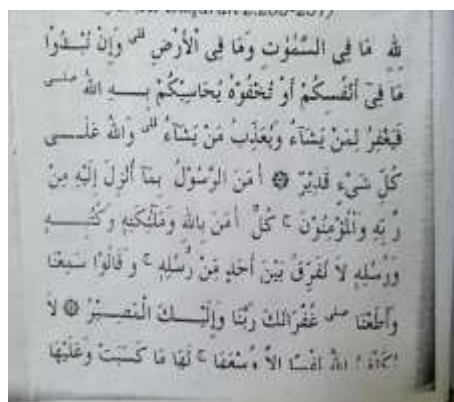 لِلّٰهِ مَا فِى السَّمٰوٰتِ وَمَا فِى الْاَرْضِ قلى وَاِنْ تُبْدُوْا
مَا فِىْٓ اَنْفُسِكُمْ اَوْ تُخْفُوْهُ يُحَاسِبْكُمْ بِـــهِ اللّٰهُ صلى
فَيَغْفِرُ لِمَنْ يَشَآءُ وَيُعَذِّبُ مَنْ يَشَآءُ قلى وَاللّٰهُ عَلٰـــى
كُلِّ شَىْءٍ قَدِيْرٌ ۞ اٰمَنَ الرَّسُوْلُ بِمَآ اُنْزِلَ اِلَيْهِ مِنْ
رَّبِّهٖ وَالْمُؤْمِنُوْنَ ج كُلٌّ اٰمَنَ بِاللّٰهِ وَمَلٰئِكَتِهٖ وَكُتُبِـــهٖ
وَرُسُلِهٖ لَا نُفَرِّقُ بَيْنَ اَحَدٍ مِّنْ رُّسُلِهٖ ج وَقَالُوْا سَمِعْنَا
وَاَطَعْنَا صلى غُفْرَانَكَ رَبَّنَا وَاِلَيْـــكَ الْمَصِـــيْرُ ۞ لَا
يُكَلِّفُ اللّٰهُ نَفْسًا اِلَّا وُسْعَهَا ج لَهَا مَا كَسَبَتْ وَعَلَيْهَا